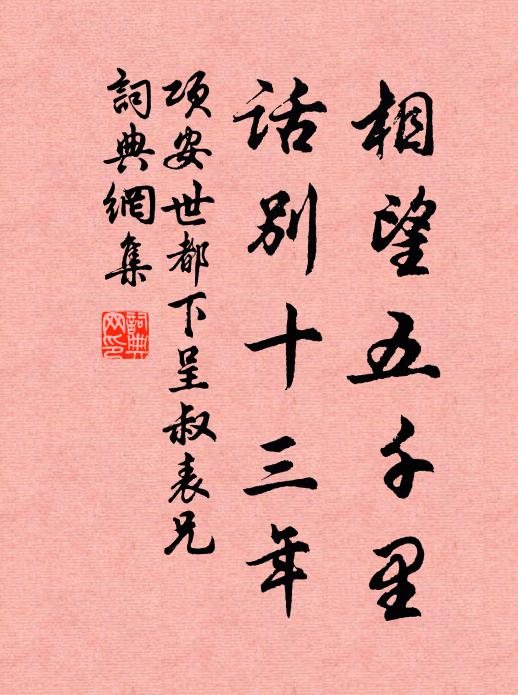 相望五千里
話別十三年
項安世都下呈叔表兄
詞典網集
詞典
网印